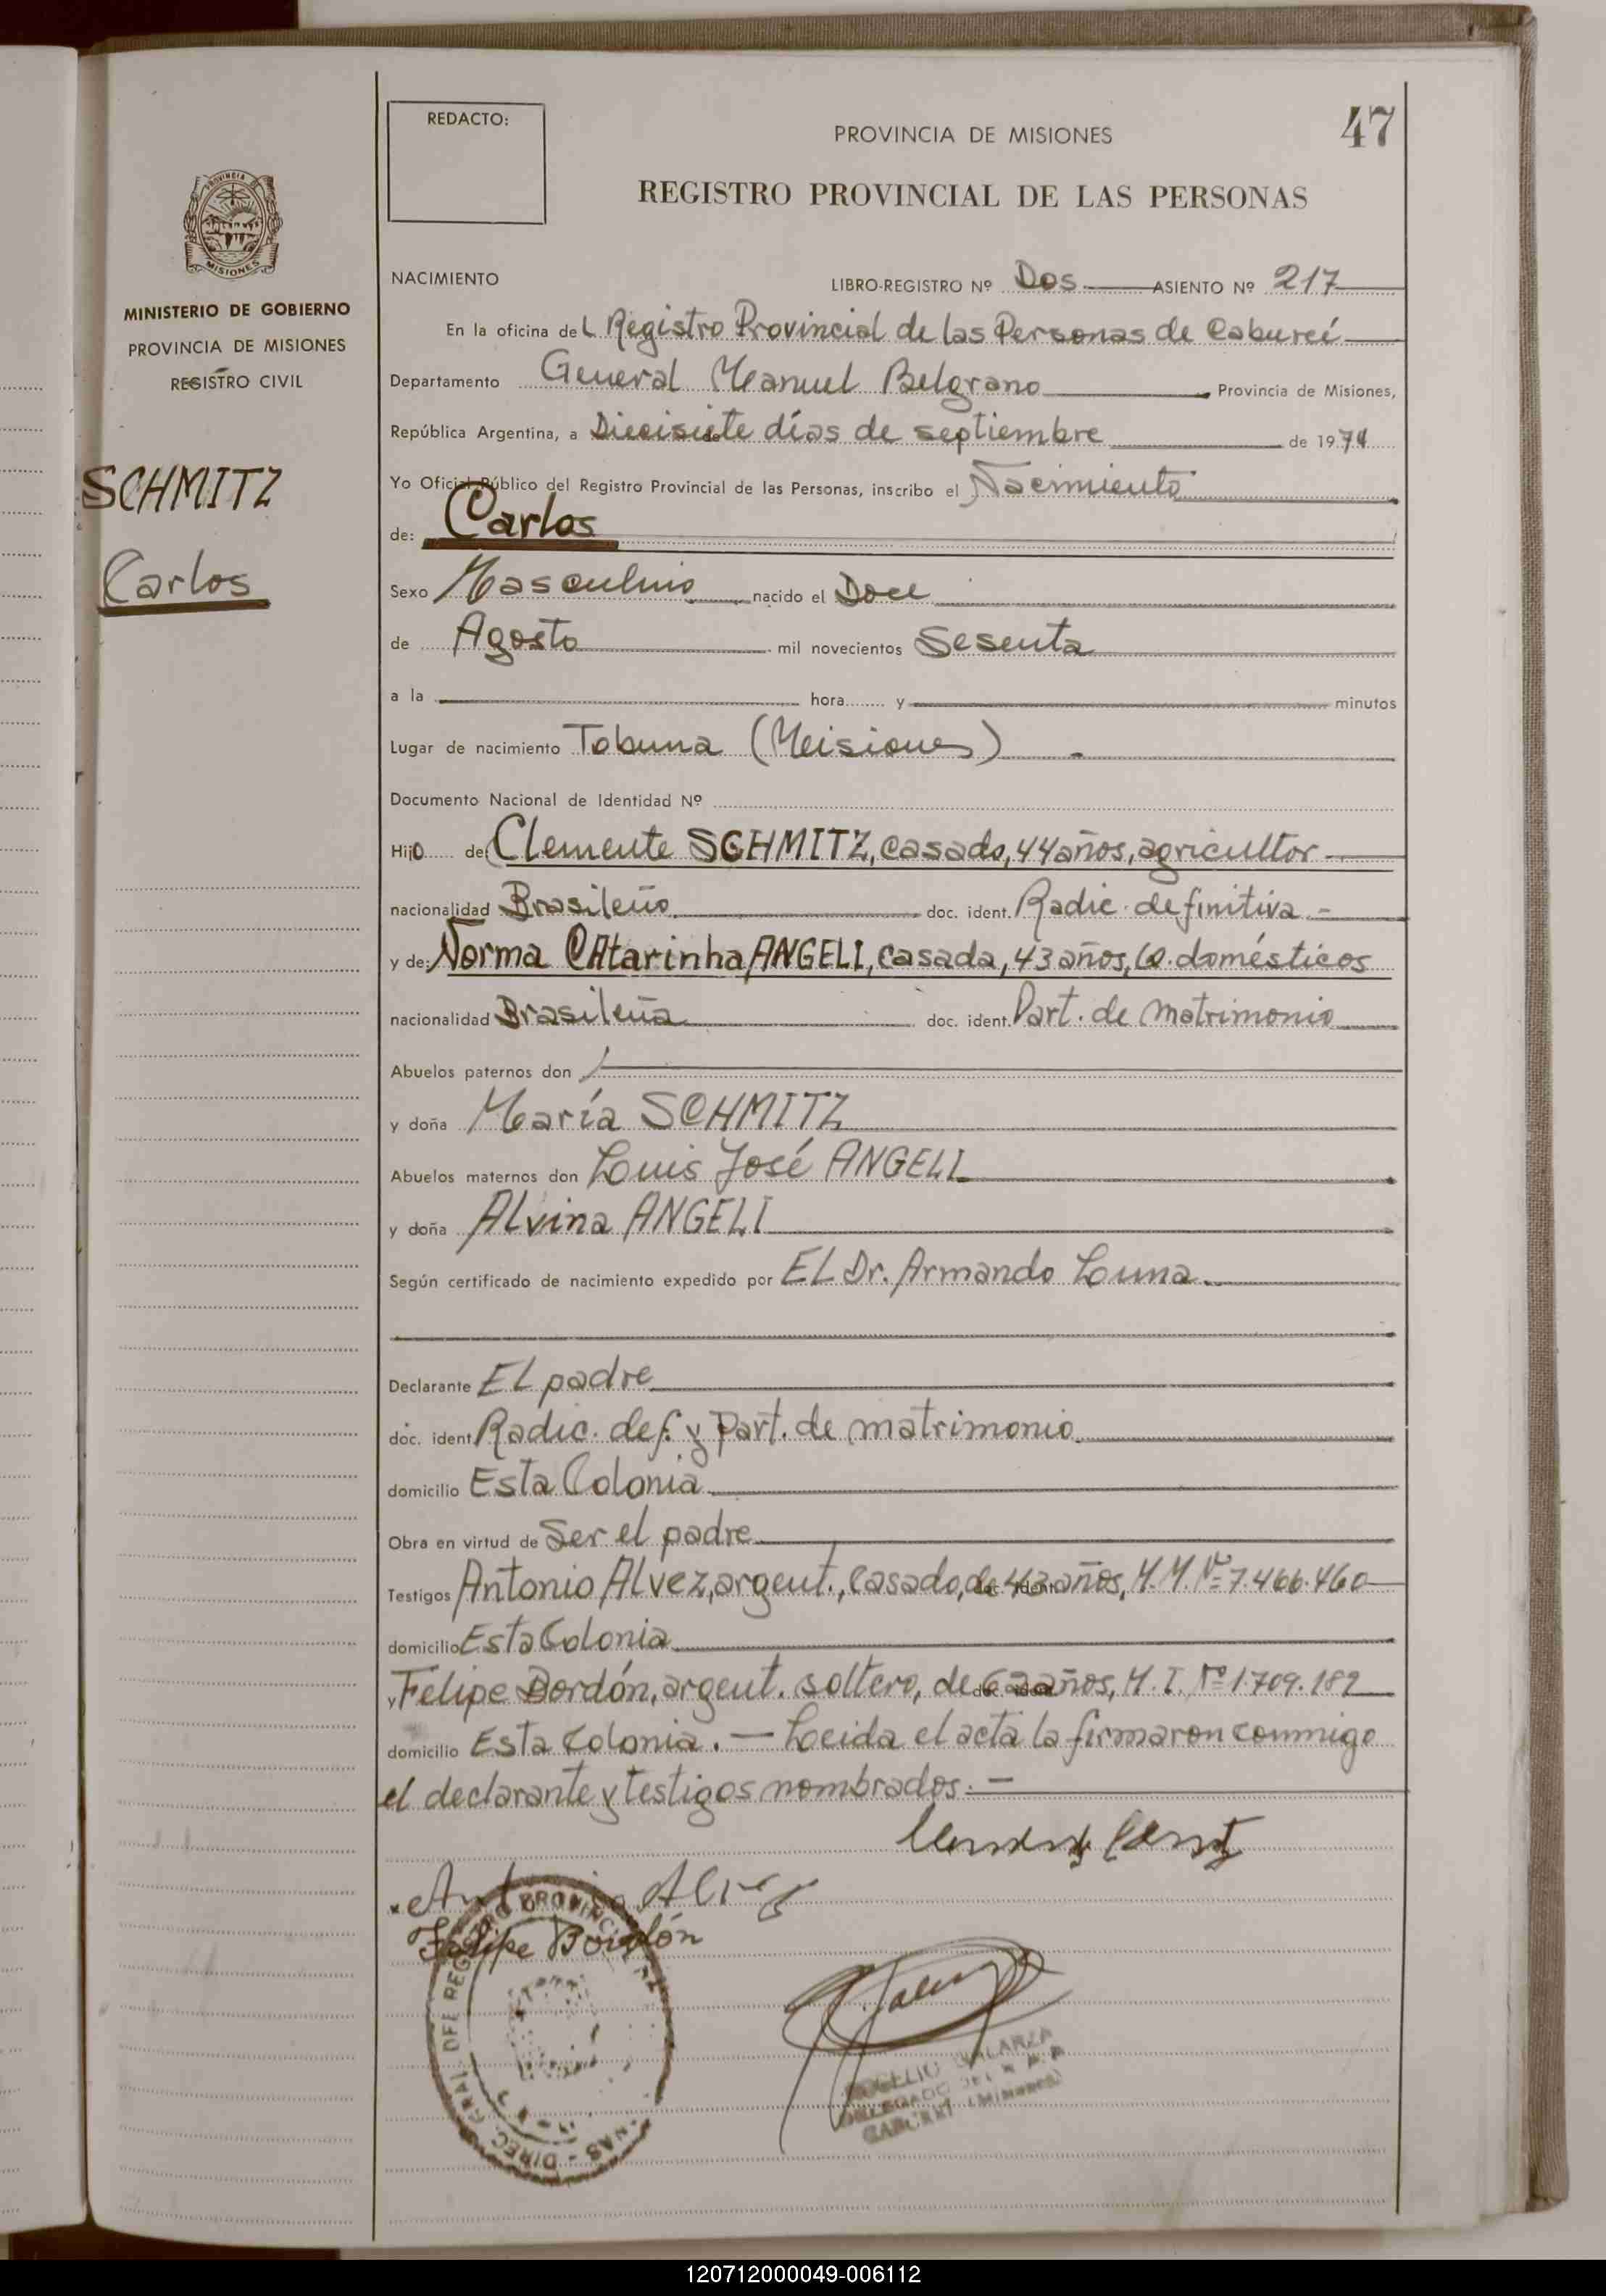 47
REDACTO:
PROVINCIA DE MISIONES
REGISTRO PROVINCIAL DE LAS PERSONAS
PROVINCIA
MISIONES
MINISTERIO DE GOBIERNO
PROVINCIA DE MISIONES
REGISTRO CIVIL
SCHMITZ
Carlos
NACIMIENTO LIBRO-REGISTRO Nº Dos ASIENTO Nº 217
En la oficina del Registro Provincial de las Personas de Caburei
Departamento General Manuel Belgrano Provincia de Misiones,
República Argentina, a Diecisiete días de septiembre de 1974
Yo Oficial Público del Registro Provincial de las Personas, inscribo el Nacimiento
de: Carlos
Sexo Masculino nacido el Doce
de Agosto mil novecientos Sesenta
a la hora y minutos
Lugar de nacimiento Tobuna (Misiones)
Documento Nacional de Identidad Nº
Hijo de: Clemente SCHMITZ, casado, 44 años, agricultor
nacionalidad Brasileño doc. ident. Radic. definitiva -
y de: Norma CAtarinha ANGELI, casada, 43 años, Q. domésticos
nacionalidad Brasileña doc. ident. Part. de matrimonio
Abuelos paternos don
y doña María SCHMITZ
Abuelos maternos don Luis José ANGELI
y doña Alvina ANGELI
Según certificado de nacimiento expedido por El Dr. Armando Luna
Declarante El padre
doc. ident. Radic. def. y Part. de matrimonio
domicilio Esta Colonia
Obra en virtud de Ser el padre
Testigos Antonio Alvez, argent., casado, de 43 años, M.M. Nº 7.466.460
domicilio Esta Colonia
y Felipe Bordón, argent. soltero, de años, M. I. Nº 1.709.182
domicilio Esta Colonia. — Leida el acta la firmaron conmigo
el declarante y testigos nombrados. —
Antonio Alvez
Felipe Bordón
DIREC. GRAL. DEL REGISTRO PROVINCIAL
ROGELIO GALARZA
DELEGADO DEL
CABUREI (Misiones)
120712000049-006112